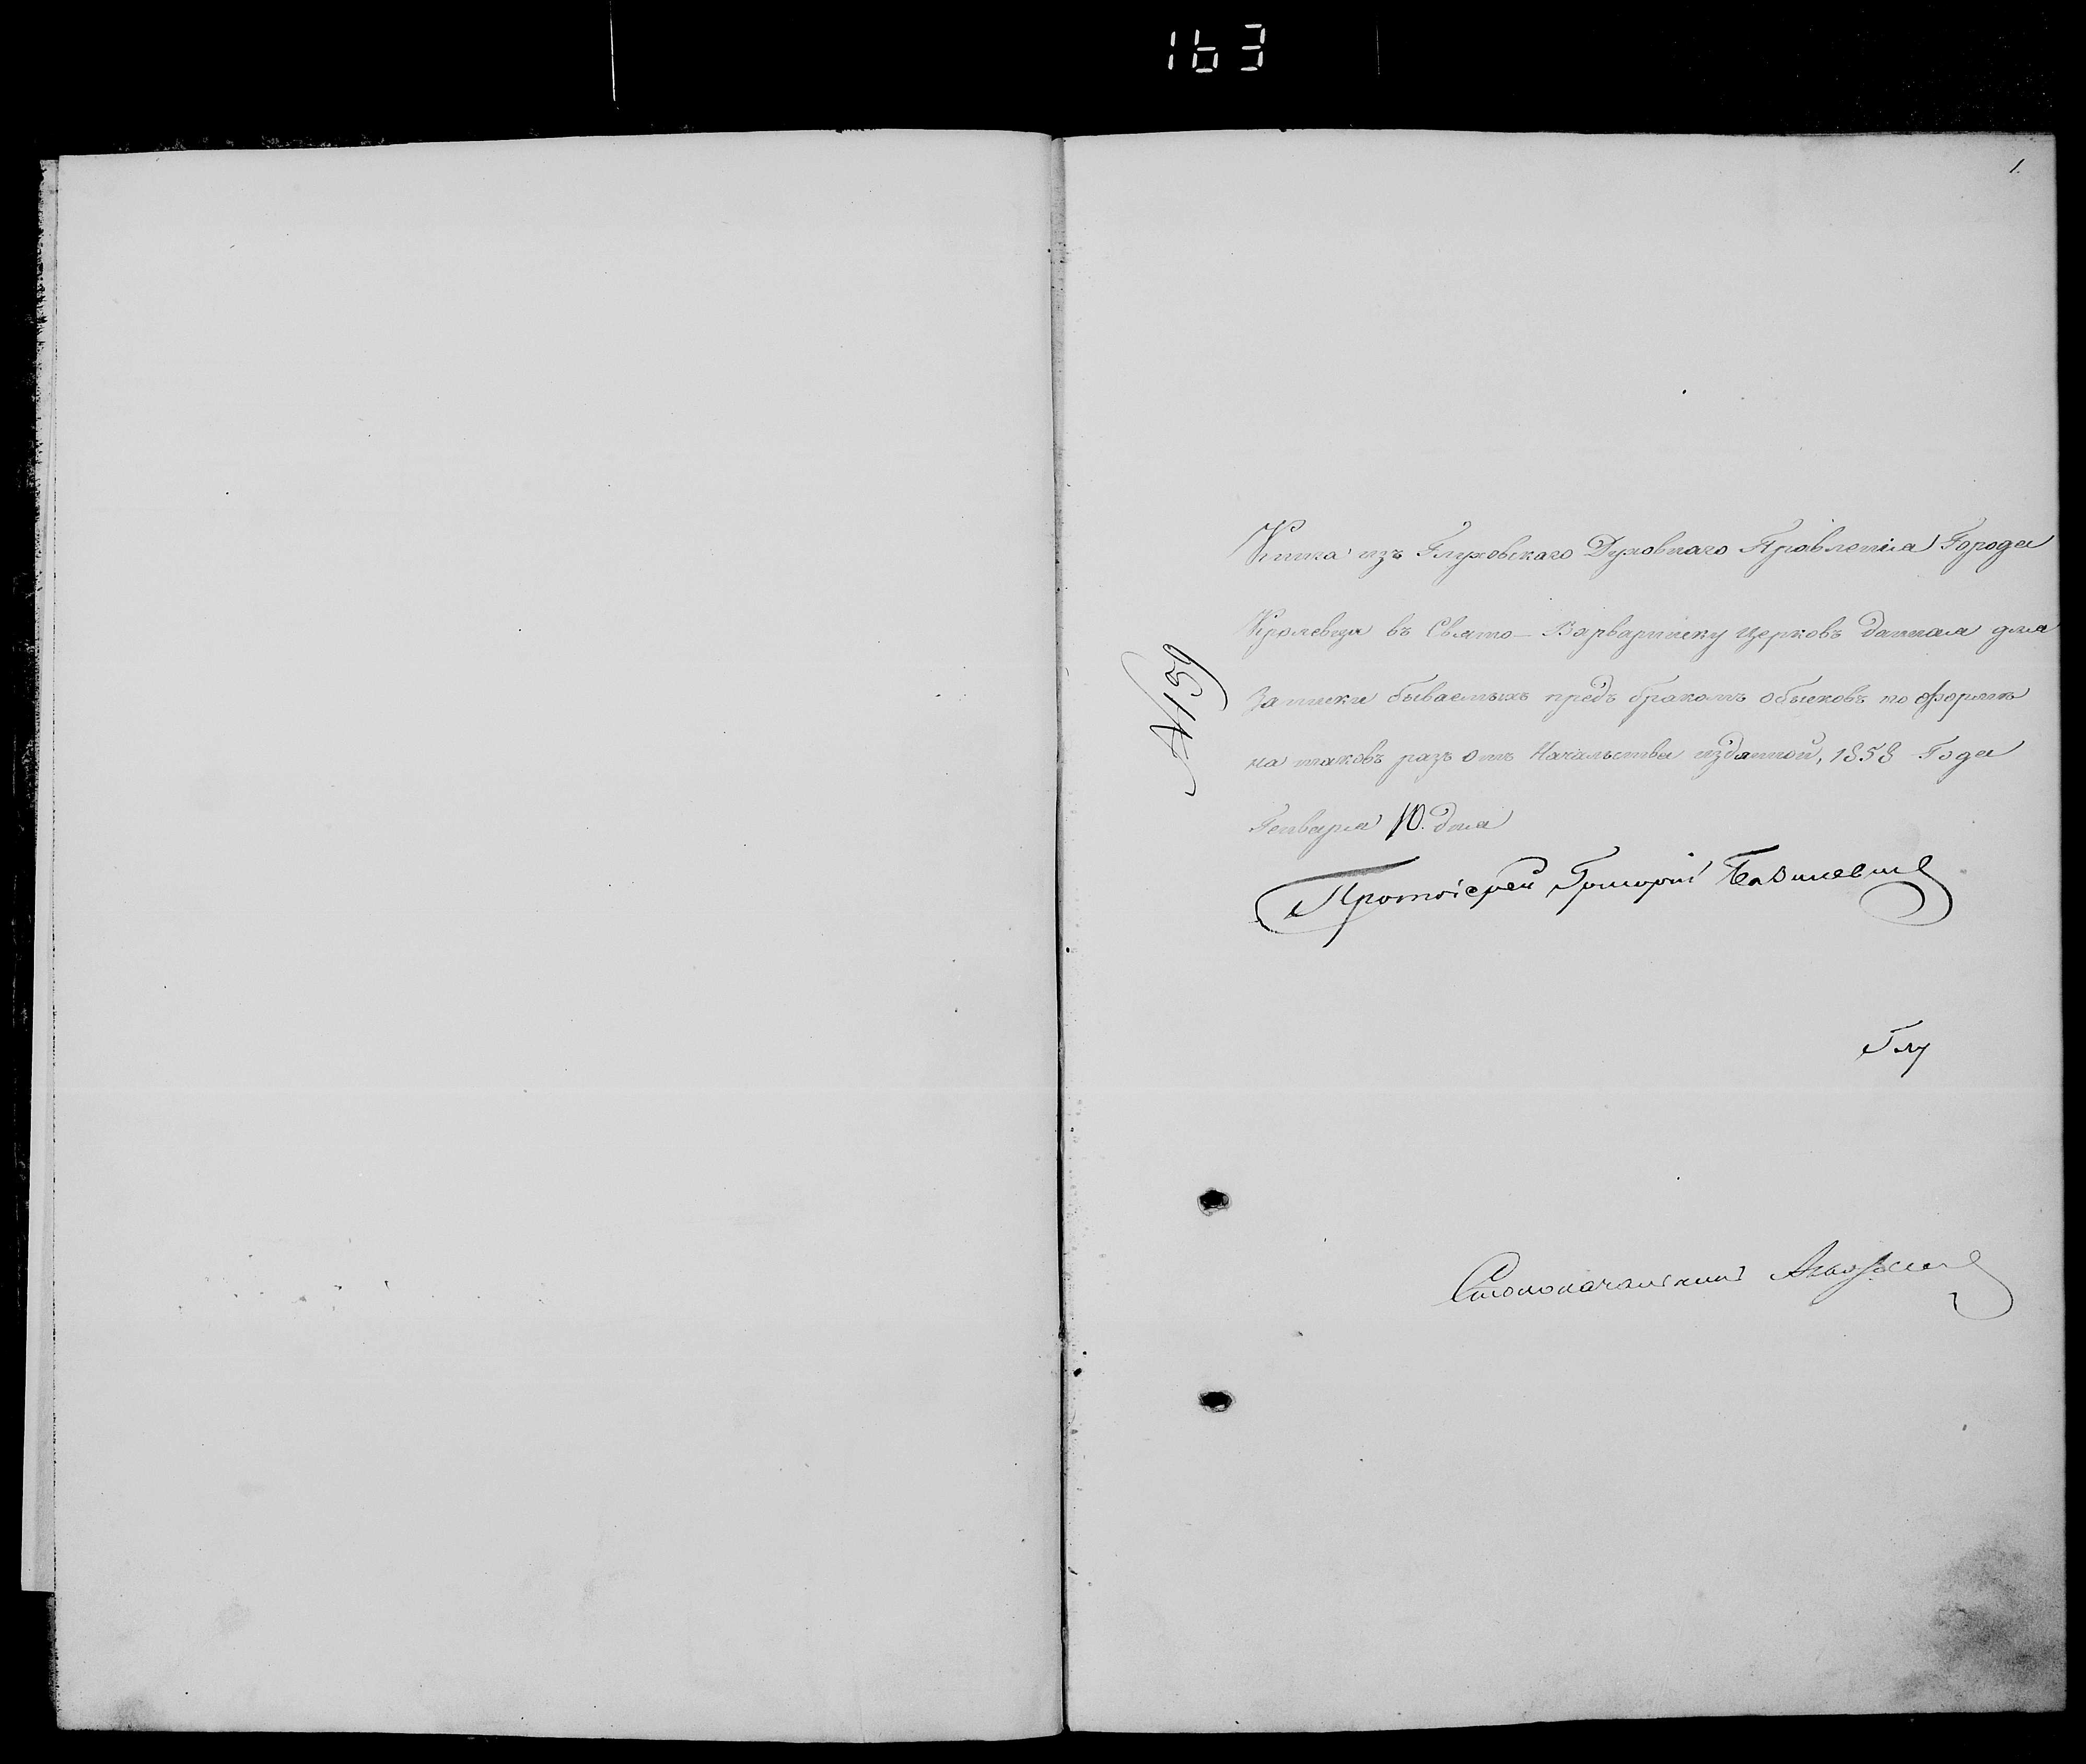 163
1.
Книга изъ Глуховскаго Духовнаго Правленія Города
Кролевца въ Свято-Варваринску церковь данная для
Записки бываемыхъ предъ бракомъ обысковъ по Формѣ
на таковъ разъ отъ Начальства изданной, 1858 Года
Генваря 10. дня
№ 159
Протоіерей Григорій
Глу
Столоначальникъ